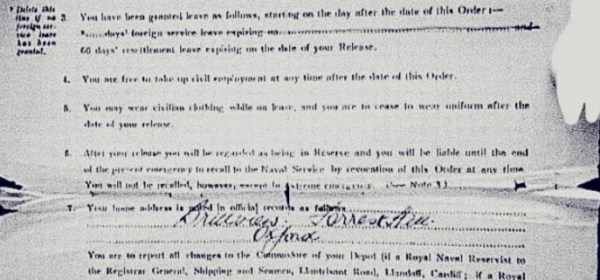 * Delete this
line if no
foreign ser-
vice leave
has been
granted.
3. You have been granted leave as follows, starting on the day after the date of this Order :—
*......days' foreign service leave expiring on and
60 days' resettlement leave expiring on the date of your Release.
4. You are free to take up civil employment at any time after the date of this Order.
5. You may wear civilian clothing while on leave, and you are to cease to wear uniform after the
date of your release.
6. After your release you will be regarded as being in Reserve and you will be liable until the end
of the present emergency to recall to the Naval Service by revocation of this Order at any time.
You will not be recalled, however, except in extreme emergency. (See Note 3.)
7. Your home address is noted in official records as follows
Oxford
You are to report all changes to the Commodore of your Depot (if a Royal Naval Reservist to
the Registrar General, Shipping and Seamen, Llantrisant Road, Llandaff, Cardiff; if a Royal